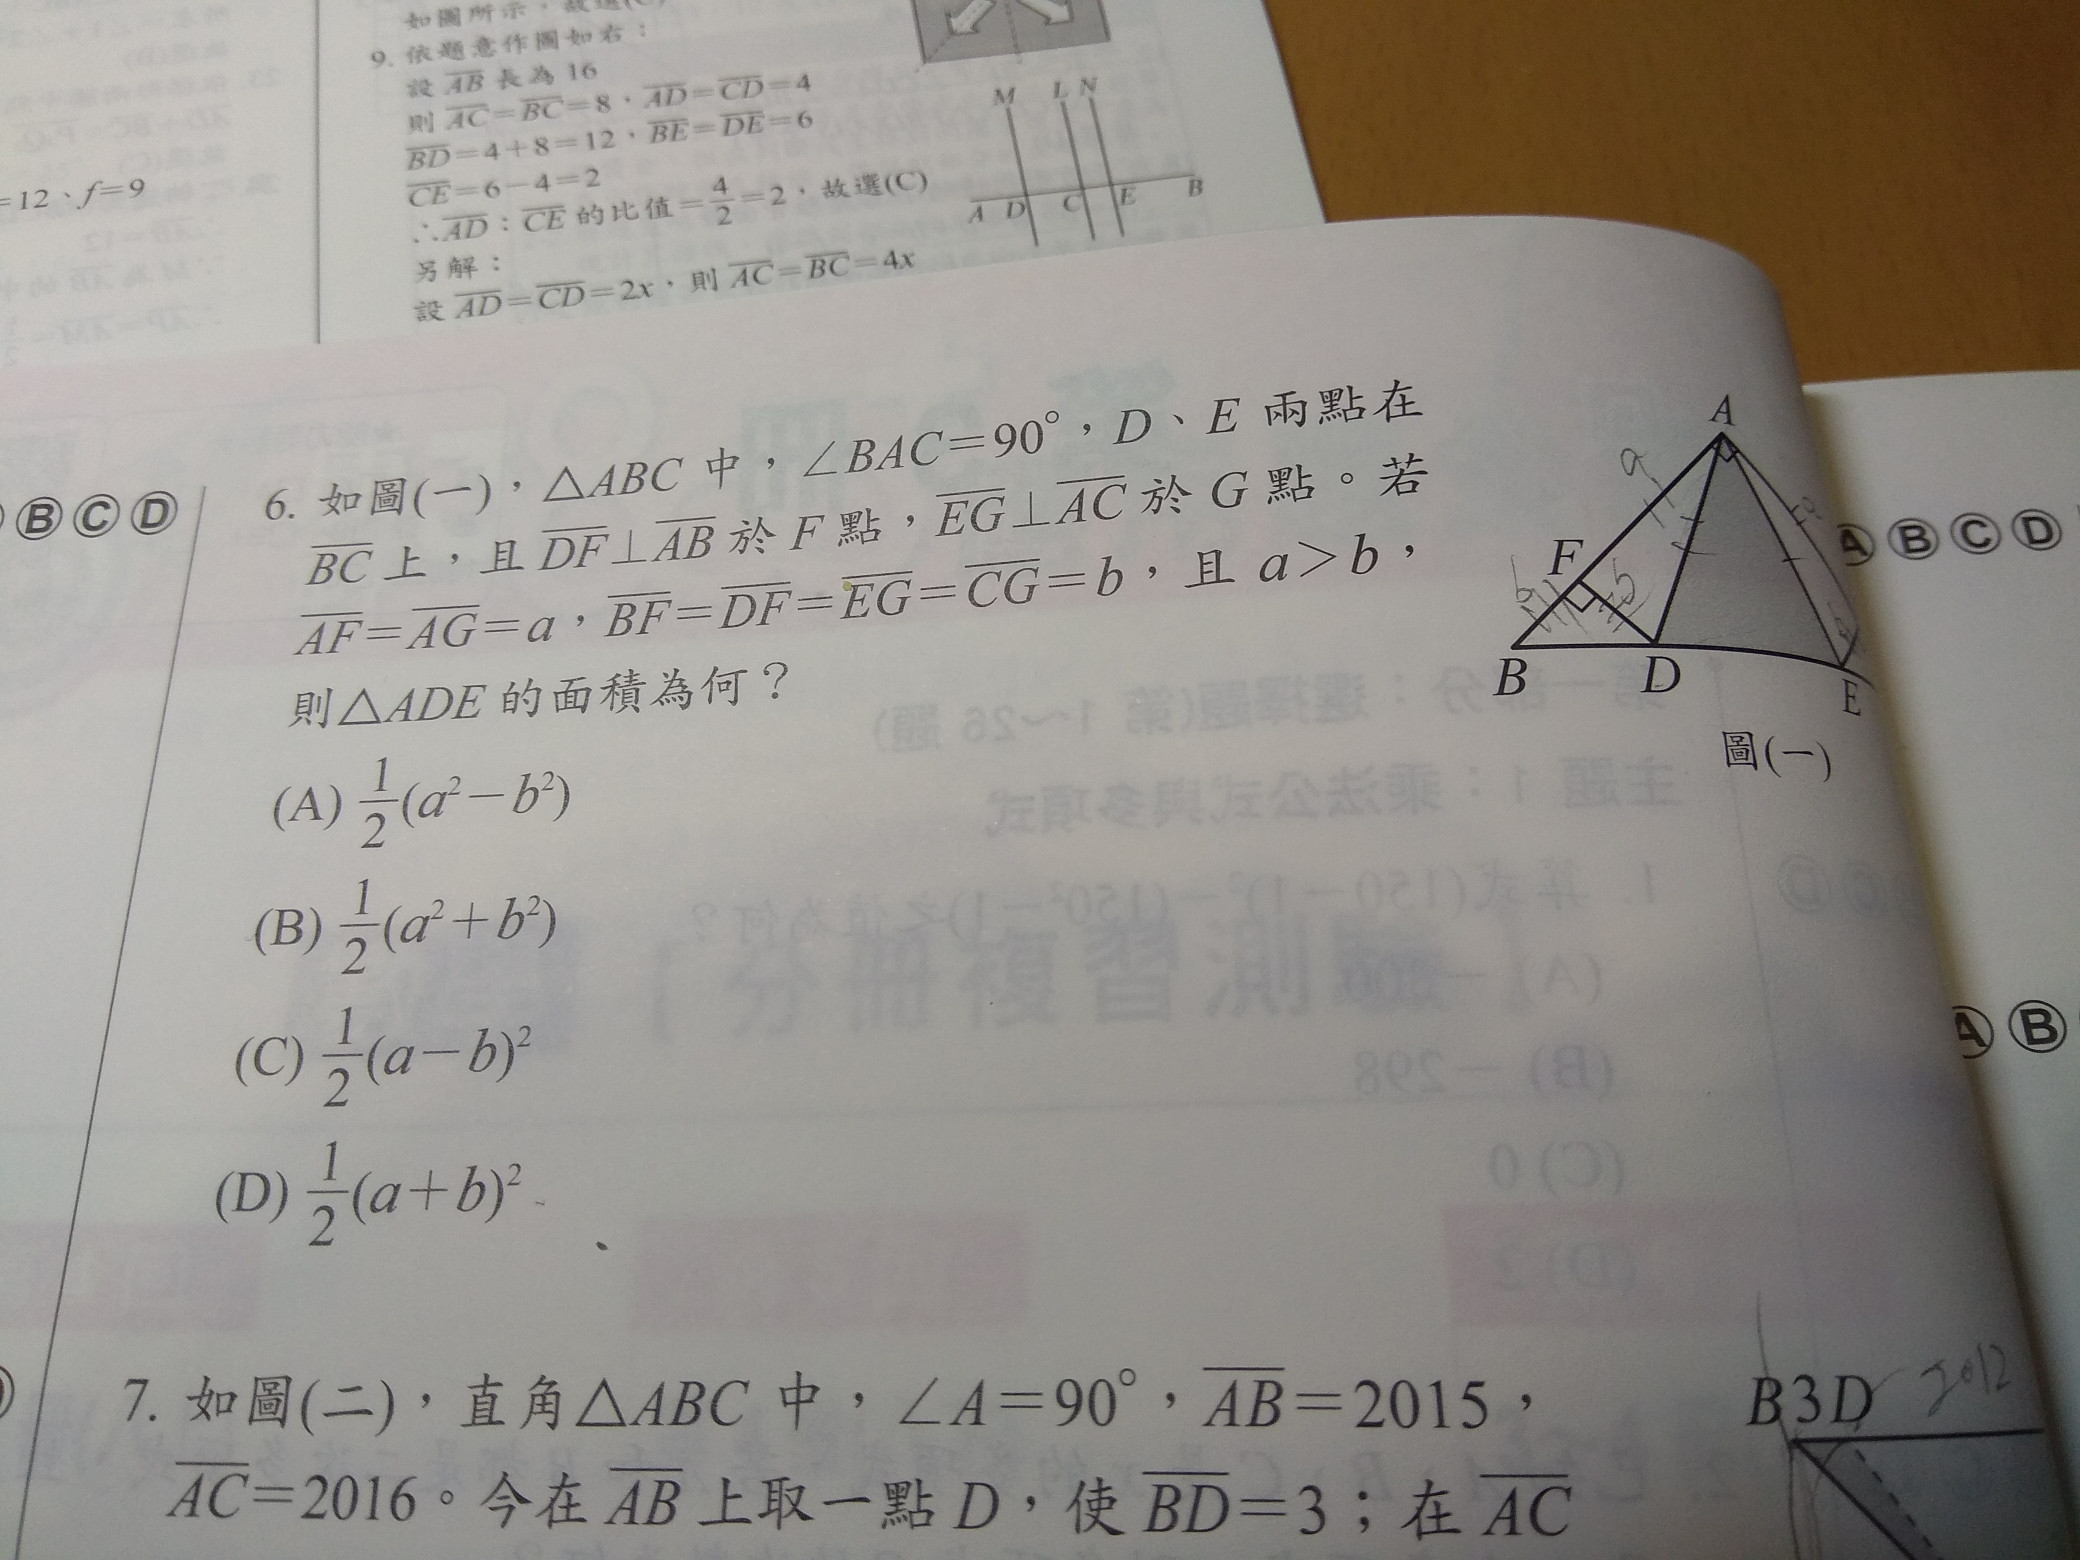 如圖所示，故選(C)
9. 依題意作圖如右：
設 AB 長為 16
則 AC=BC=8，AD=CD=4
BD=4+8=12，BE=DE=6
CE=6-4=2
∴AD：CE 的比值=4/2=2，故選(C)
另解：
設 AD=CD=2x，則 AC=BC=4x
M L N
A D C E B
=12、f=9
Ⓑ Ⓒ Ⓓ
6. 如圖(一)，△ABC 中，∠BAC=90°，D、E 兩點在
BC 上，且 DF⊥AB 於 F 點，EG⊥AC 於 G 點。若
AF=AG=a，BF=DF=EG=CG=b，且 a>b，
則△ADE 的面積為何？
(A) 1/2(a²-b²)
(B) 1/2(a²+b²)
(C) 1/2(a-b)²
(D) 1/2(a+b)²
A
a
F
b
b
B D E
圖(一)
Ⓐ Ⓑ Ⓒ Ⓓ
Ⓐ Ⓑ
7. 如圖(二)，直角△ABC 中，∠A=90°，AB=2015，
AC=2016。今在 AB 上取一點 D，使 BD=3；在 AC
B 3 D 2012